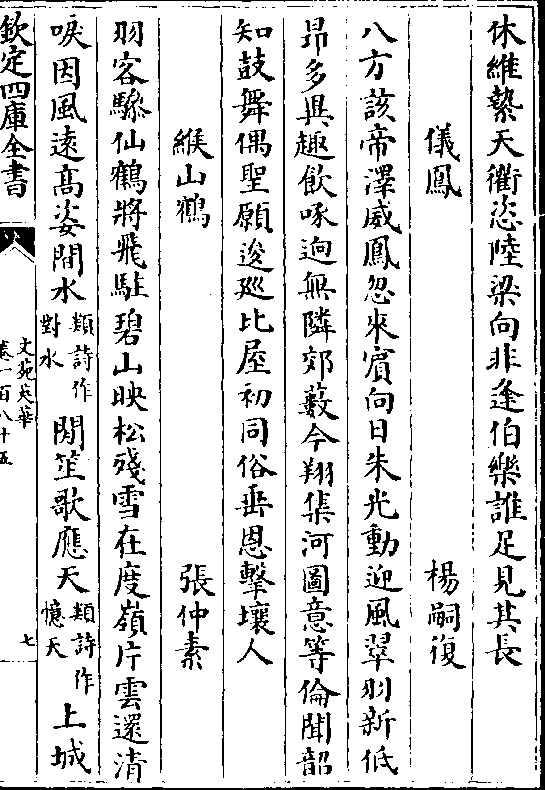 休維縶天衢恣陸梁向非逢伯樂誰足見其長
儀鳳　楊嗣復
八方該帝澤威鳳忽來賓向日朱光動迎風翠羽新低
昂多異趣飲啄迥無隣郊藪今翔集河圖意等倫聞韶
知鼓舞偶聖願逡廵比屋初同俗垂恩擊壤人
緱山鶴　張仲素
羽客驂仙鶴將飛駐碧山映松殘雪在度嶺片雲還清
唳因風遠高姿閒水類詩作對水閒笙歌應天類詩作憶天上城
欽定四庫全書
文苑英華
卷一百八十五
七